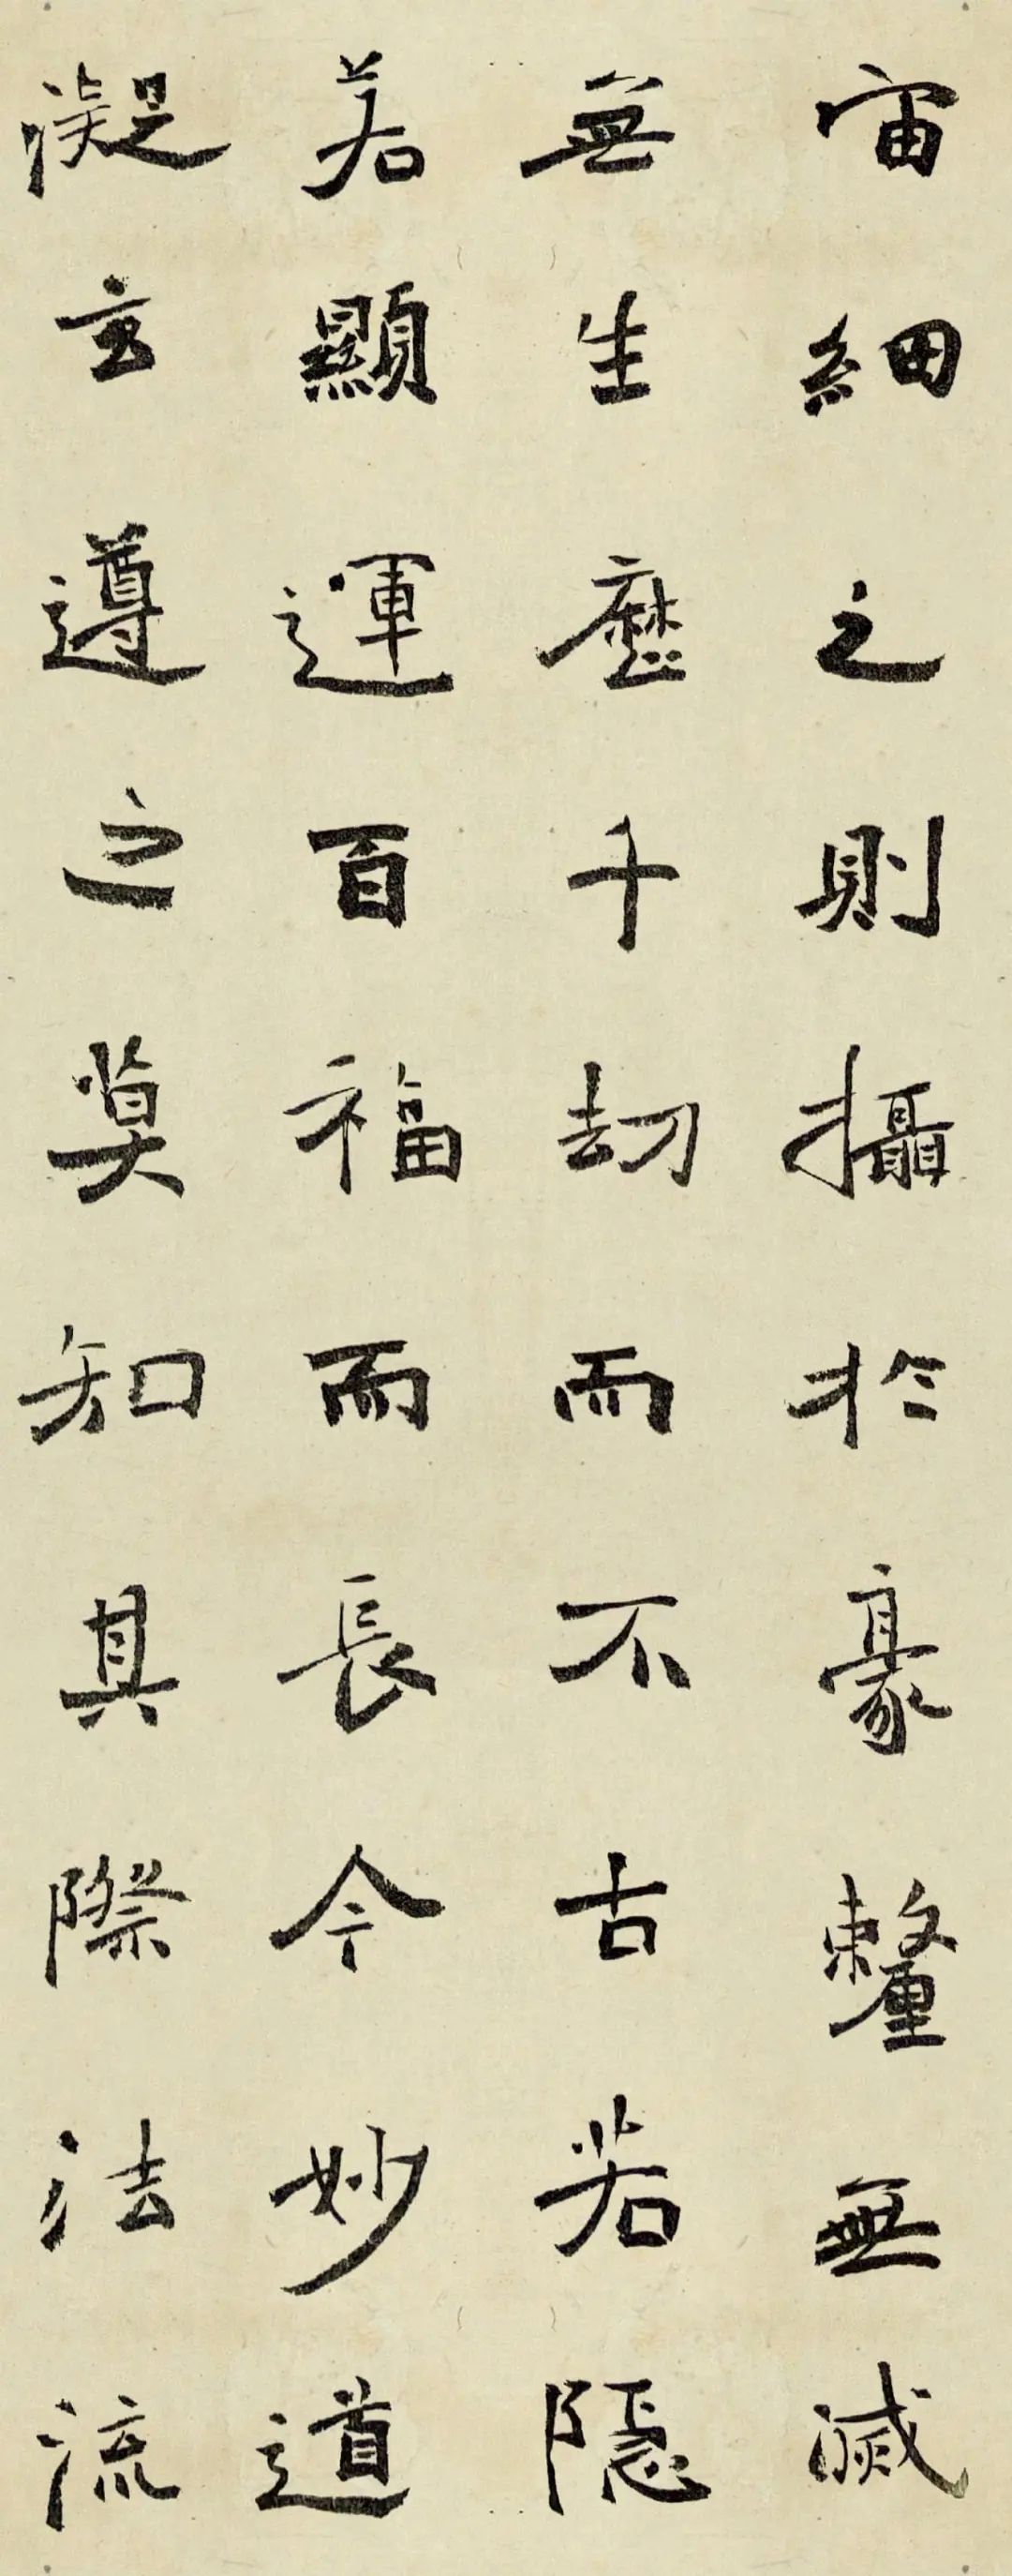 宙細之則攝於豪釐無滅
無生歷千劫而不古若隱
若顯運百福而長今妙道
凝玄遵之莫知其際法流